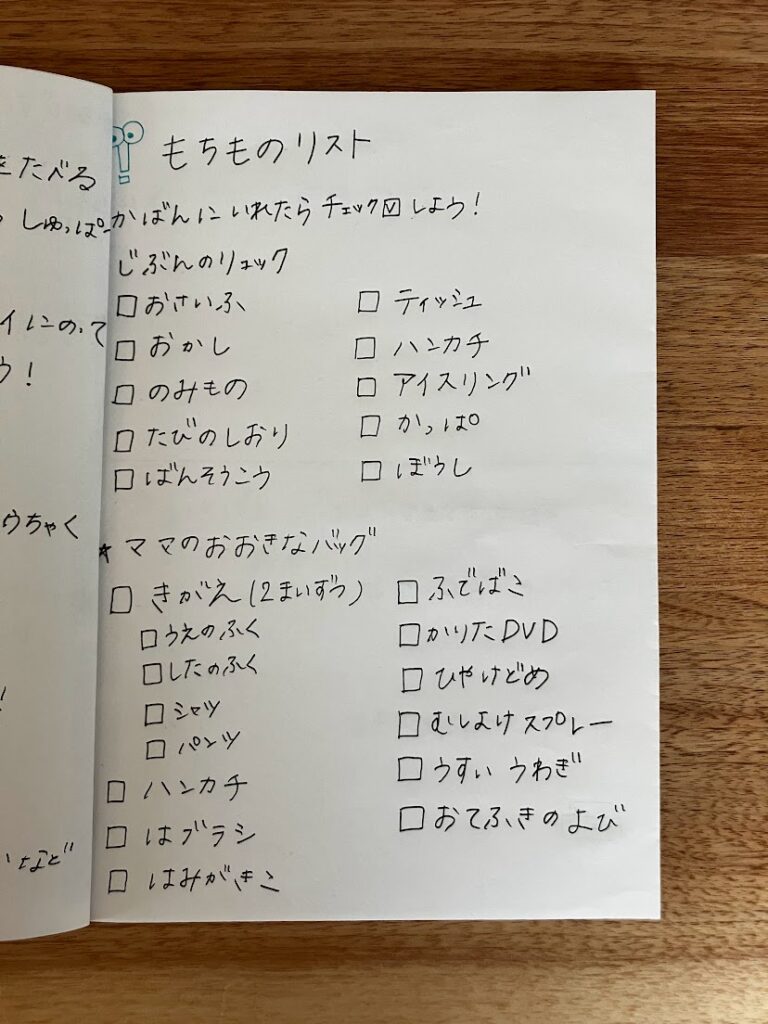 をたべる
しゅっぱ
イにのって
う！
うちゃく
！
など
もちものリスト
かばんに いれたら チェック☑しよう！
じぶんのリュック
□おさいふ
□おかし
□のみもの
□たびのしおり
□ばんそうこう
□ティッシュ
□ハンカチ
□アイスリング
□かっぱ
□ぼうし
★ママのおおきなバッグ
□きがえ(2まいずつ)
□うえのふく
□したのふく
□シャツ
□パンツ
□ハンカチ
□はブラシ
□はみがきこ
□ふでばこ
□かりたDVD
□ひやけどめ
□むしよけスプレー
□うすい うわぎ
□おてふきのよび